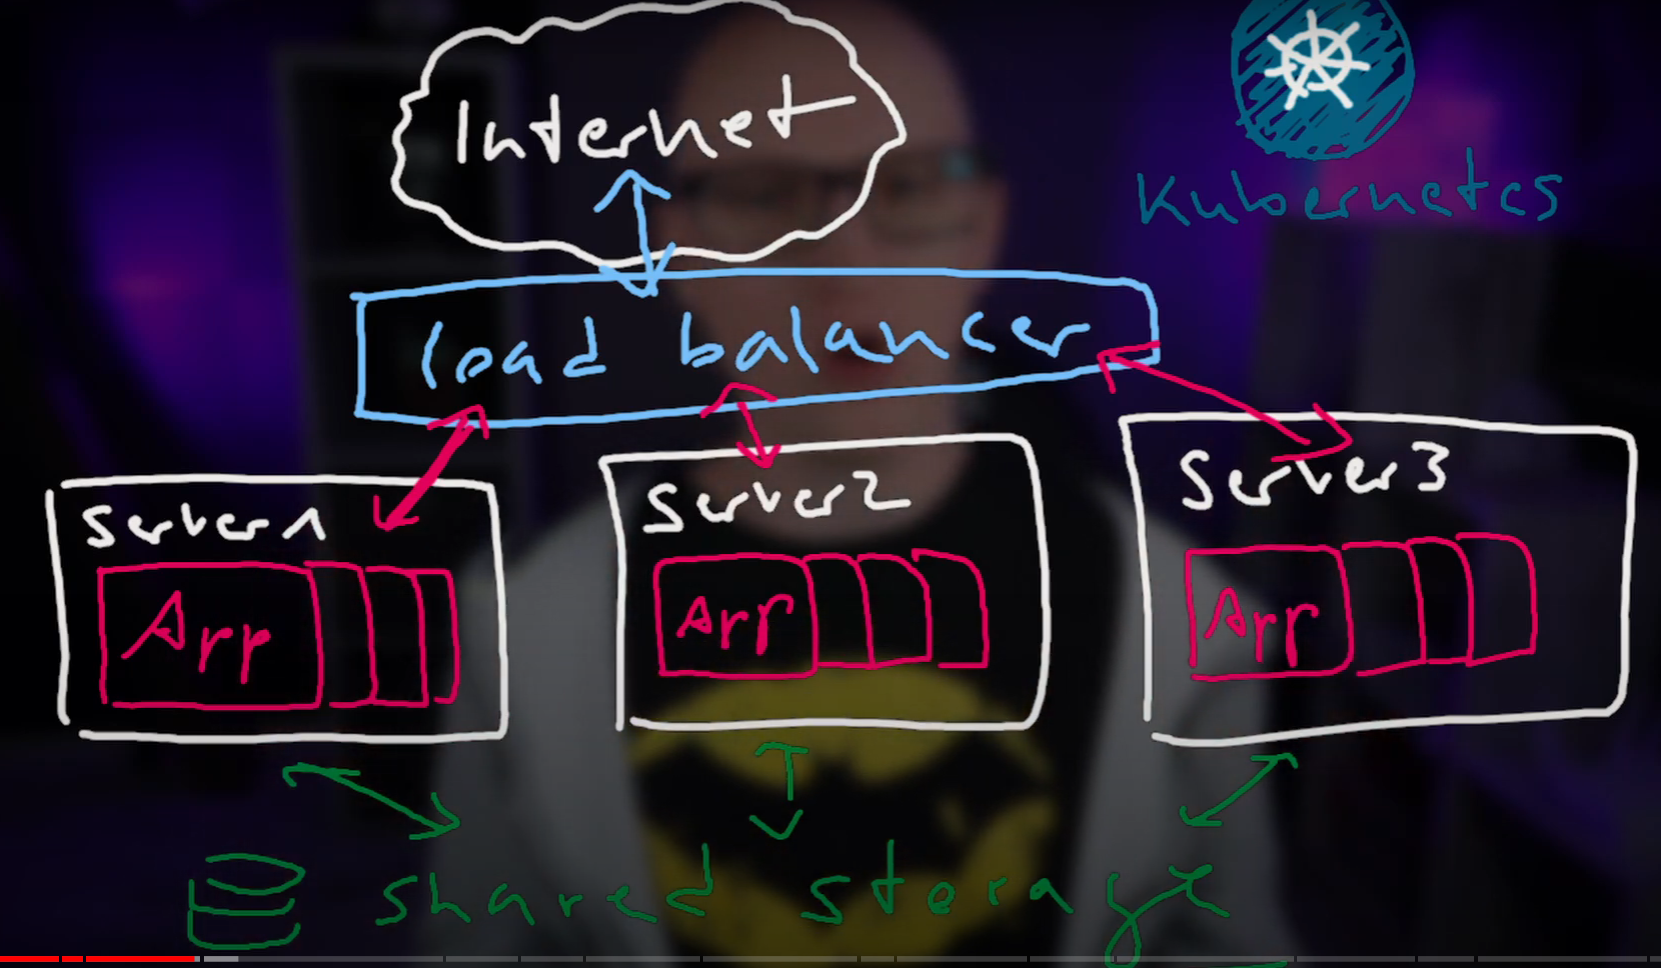 Internet
Kubernetes
load balancer
Server1
Server2
Server3
App
App
App
shared storage